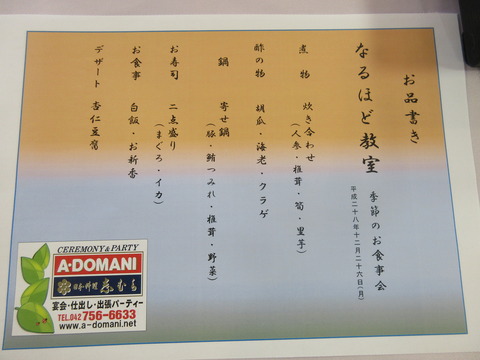 お品書き
なるほど教室 季節のお食事会
平成二十八年十二月二十六日(月)
煮物 炊き合わせ
(人参・椎茸・筍・里芋)
酢の物 胡瓜・海老・クラゲ
鍋 寄せ鍋
(豚・鮪つみれ・椎茸・野菜)
お寿司 二点盛り
(まぐろ・イカ)
お食事 白飯・お新香
デザート 杏仁豆腐
CEREMONY & PARTY
A・DOMANI
宴会・仕出し・出張パーティー
TEL.042 756-6633
www.a-domani.net